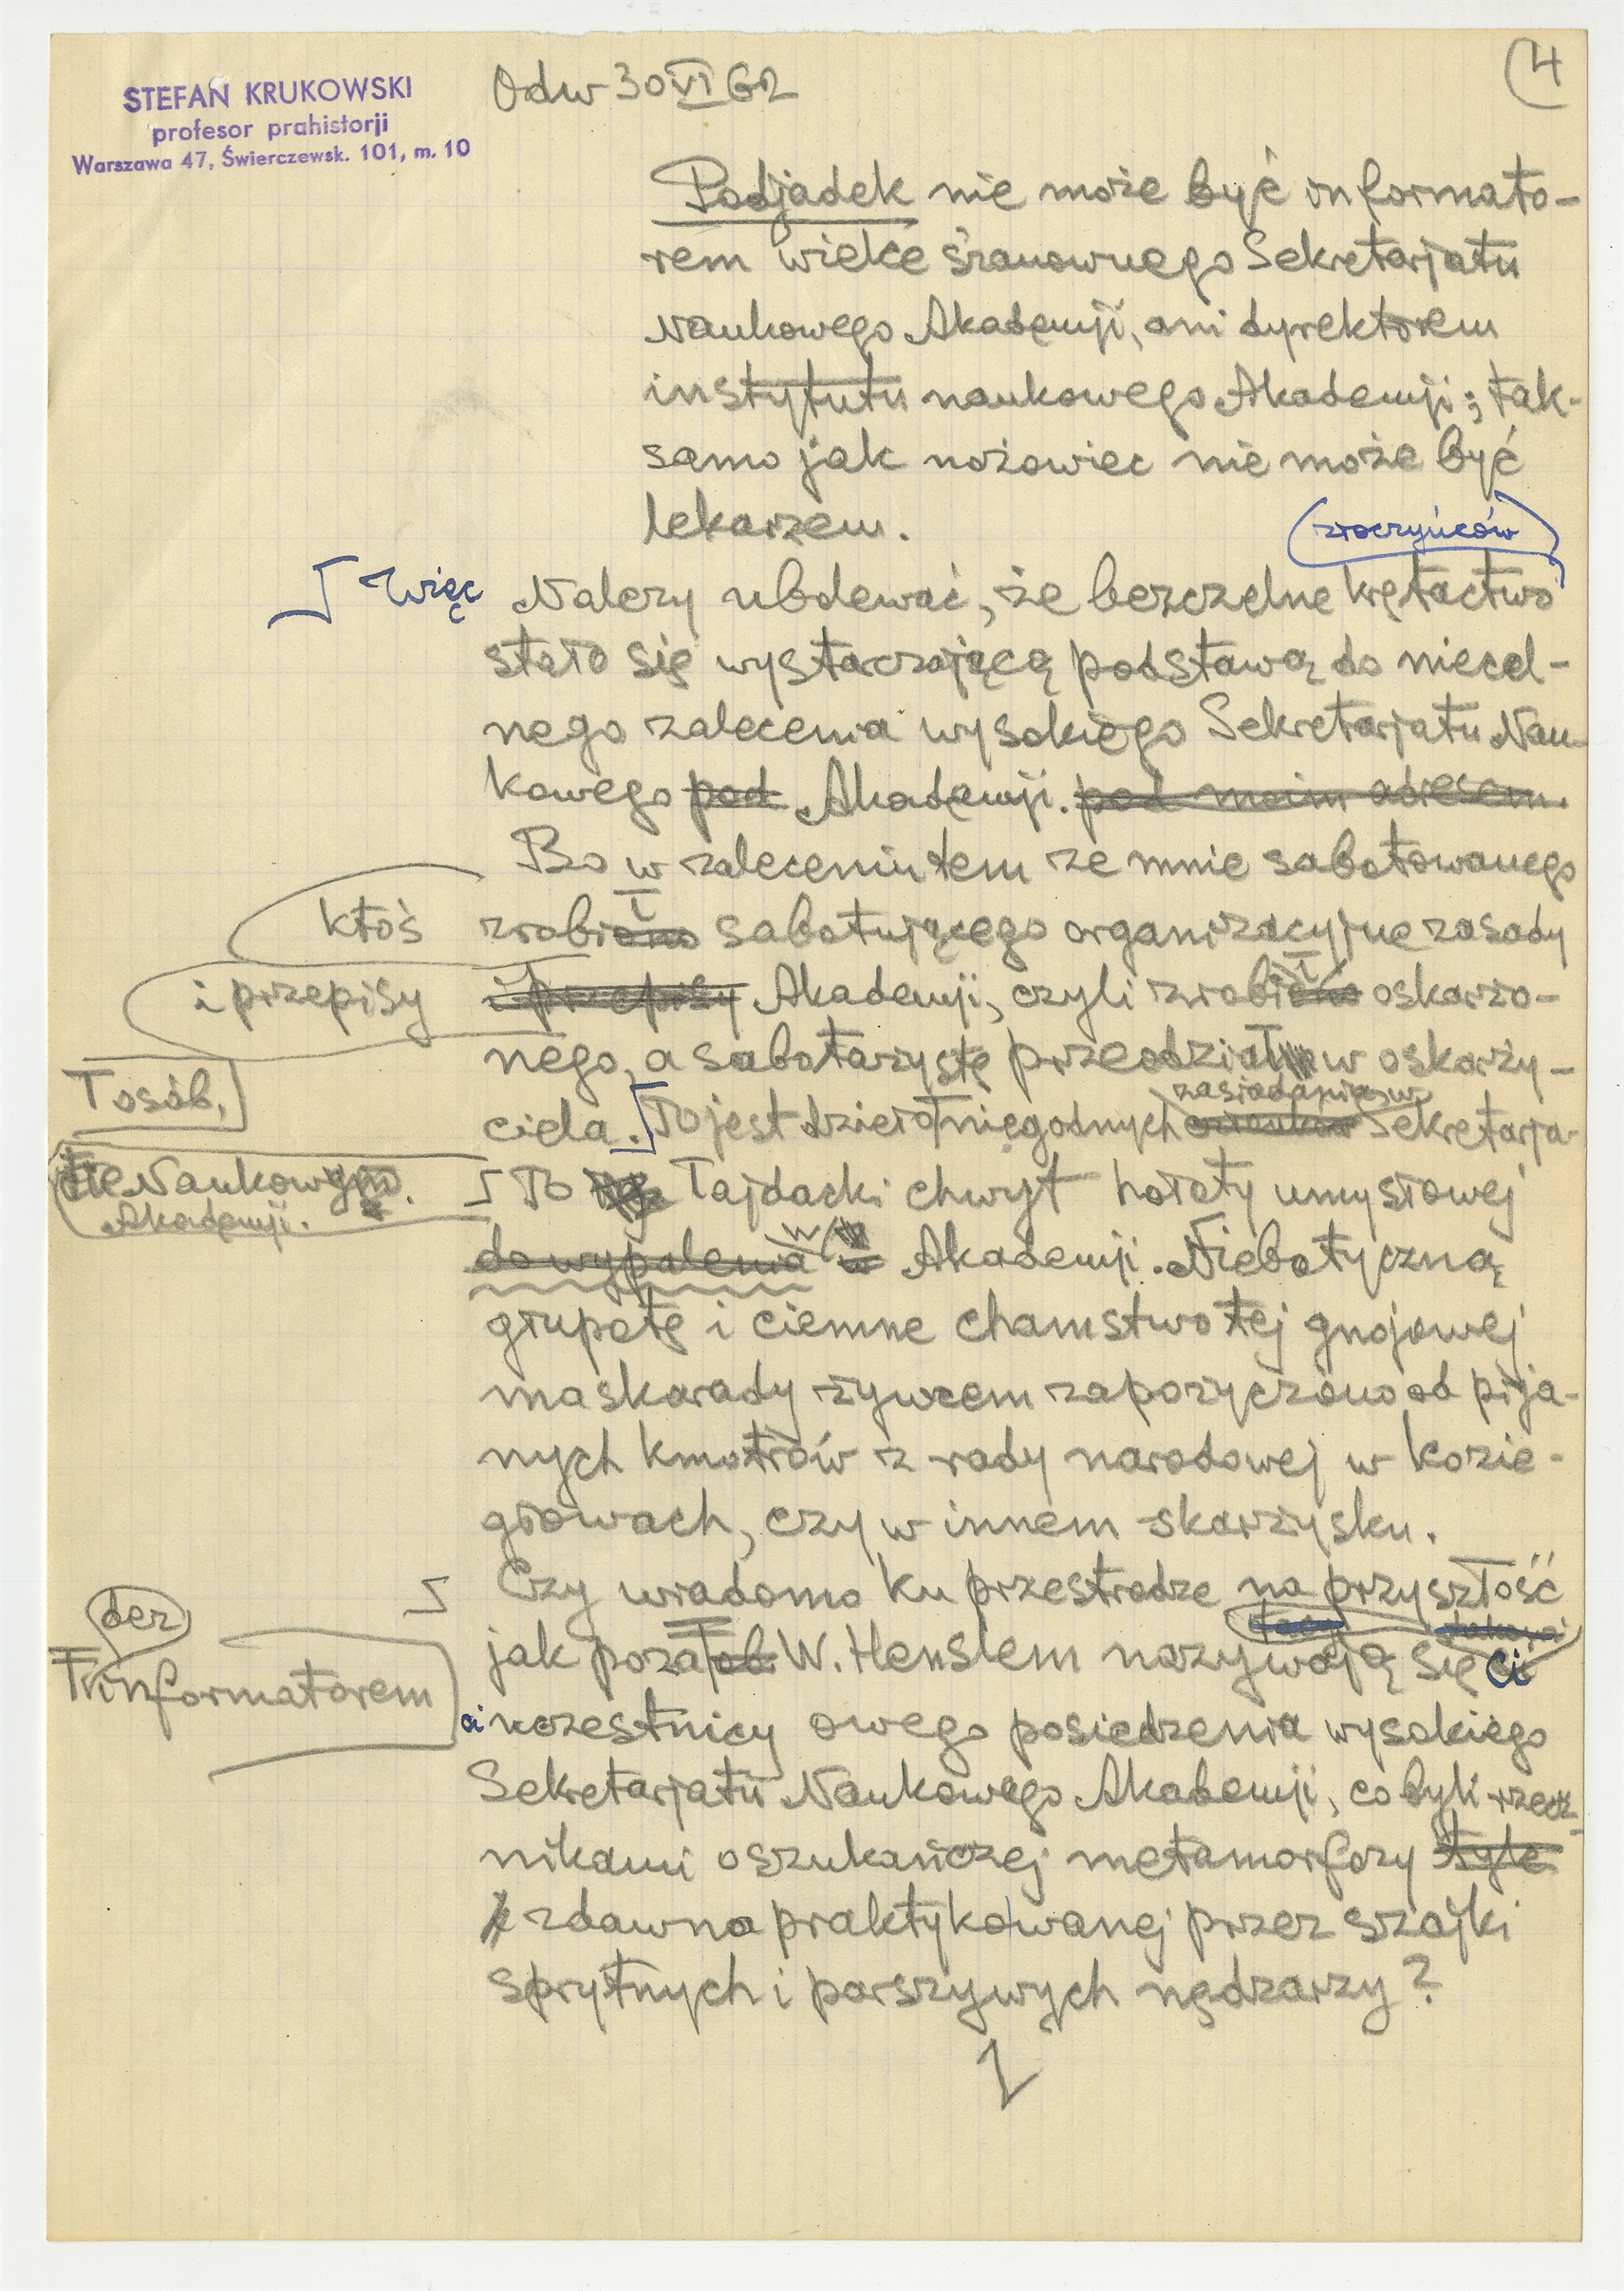 STEFAN KRUKOWSKI
profesor prahistorji
Warszawa 47, Świerczewsk. 101, m. 10
Odw 30 VI 62
4
Podjadek nie może być informato-
rem wielce szanownego Sekretarjatu
Naukowego Akademji, ani dyrektorem
instytutu naukowego Akademji; tak-
samo jak nożowiec nie może być
lekarzem.
złoczyńców
Więc Należy ubolewać, że bezczelne krętactwo
stało się wystarczającą podstawą do niecel-
nego zalecenia wysokiego Sekretarjatu Nau-
kowego pod Akademji. pod moim adresem.
Bo w zaleceniu tem ze mnie sabotowanego
ktoś
zrobiono sabotującego organizacyjne zasady
i przepisy
i przepisy Akademji, czyli zrobiono oskarżo-
nego, a sabotażystę przeodział w oskarży-
osób,
zasiadania w
ciela. To jest dzieło niegodnych członków Sekretarja-
cie Naukowym
Akademji.
To łajdacki chwyt hołoty umysłowej
do wypalenia w w Akademji. Niebotyczną
głupotę i ciemne chamstwo tej gnojowej
maskarady żywcem zapożyczono od pija-
nych kmotrów z rady narodowej w Kozie-
głowach, czy w innem skarżysku.
Czy wiadomo ku przestrodze na przyszłość
der
informatorem
jak poza ob. W. Henslem nazywają się ci
ci uczestnicy owego posiedzenia wysokiego
Sekretarjatu Naukowego Akademji, co byli rzecz-
nikami oszukańczej metamorfozy tyle
zdawna praktykowanej przez szajki
sprytnych i parszywych nędzarzy?